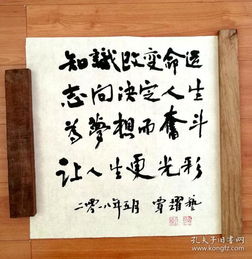 知識改变命运
志向决定人生
為夢想而奮斗
让人生更光彩
二零一八年五月 賈躍藝
孔夫子旧书网